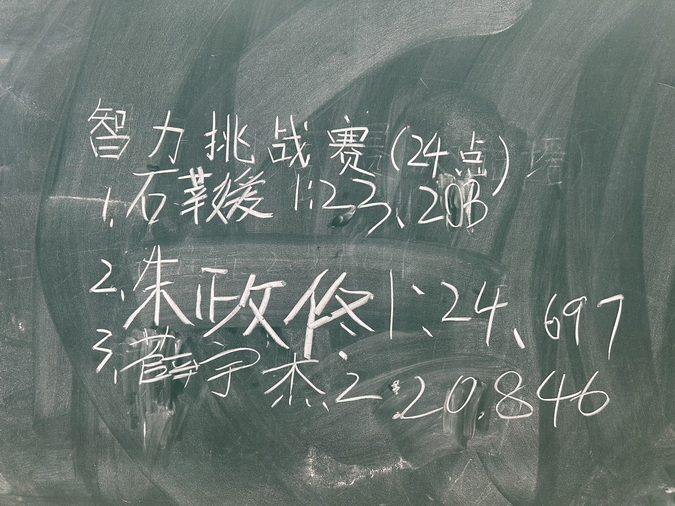 智力挑战赛(24点)
1.石莘媛 1:23.203
2.朱政佟 1:24.697
3.薛宇杰:2 20.846